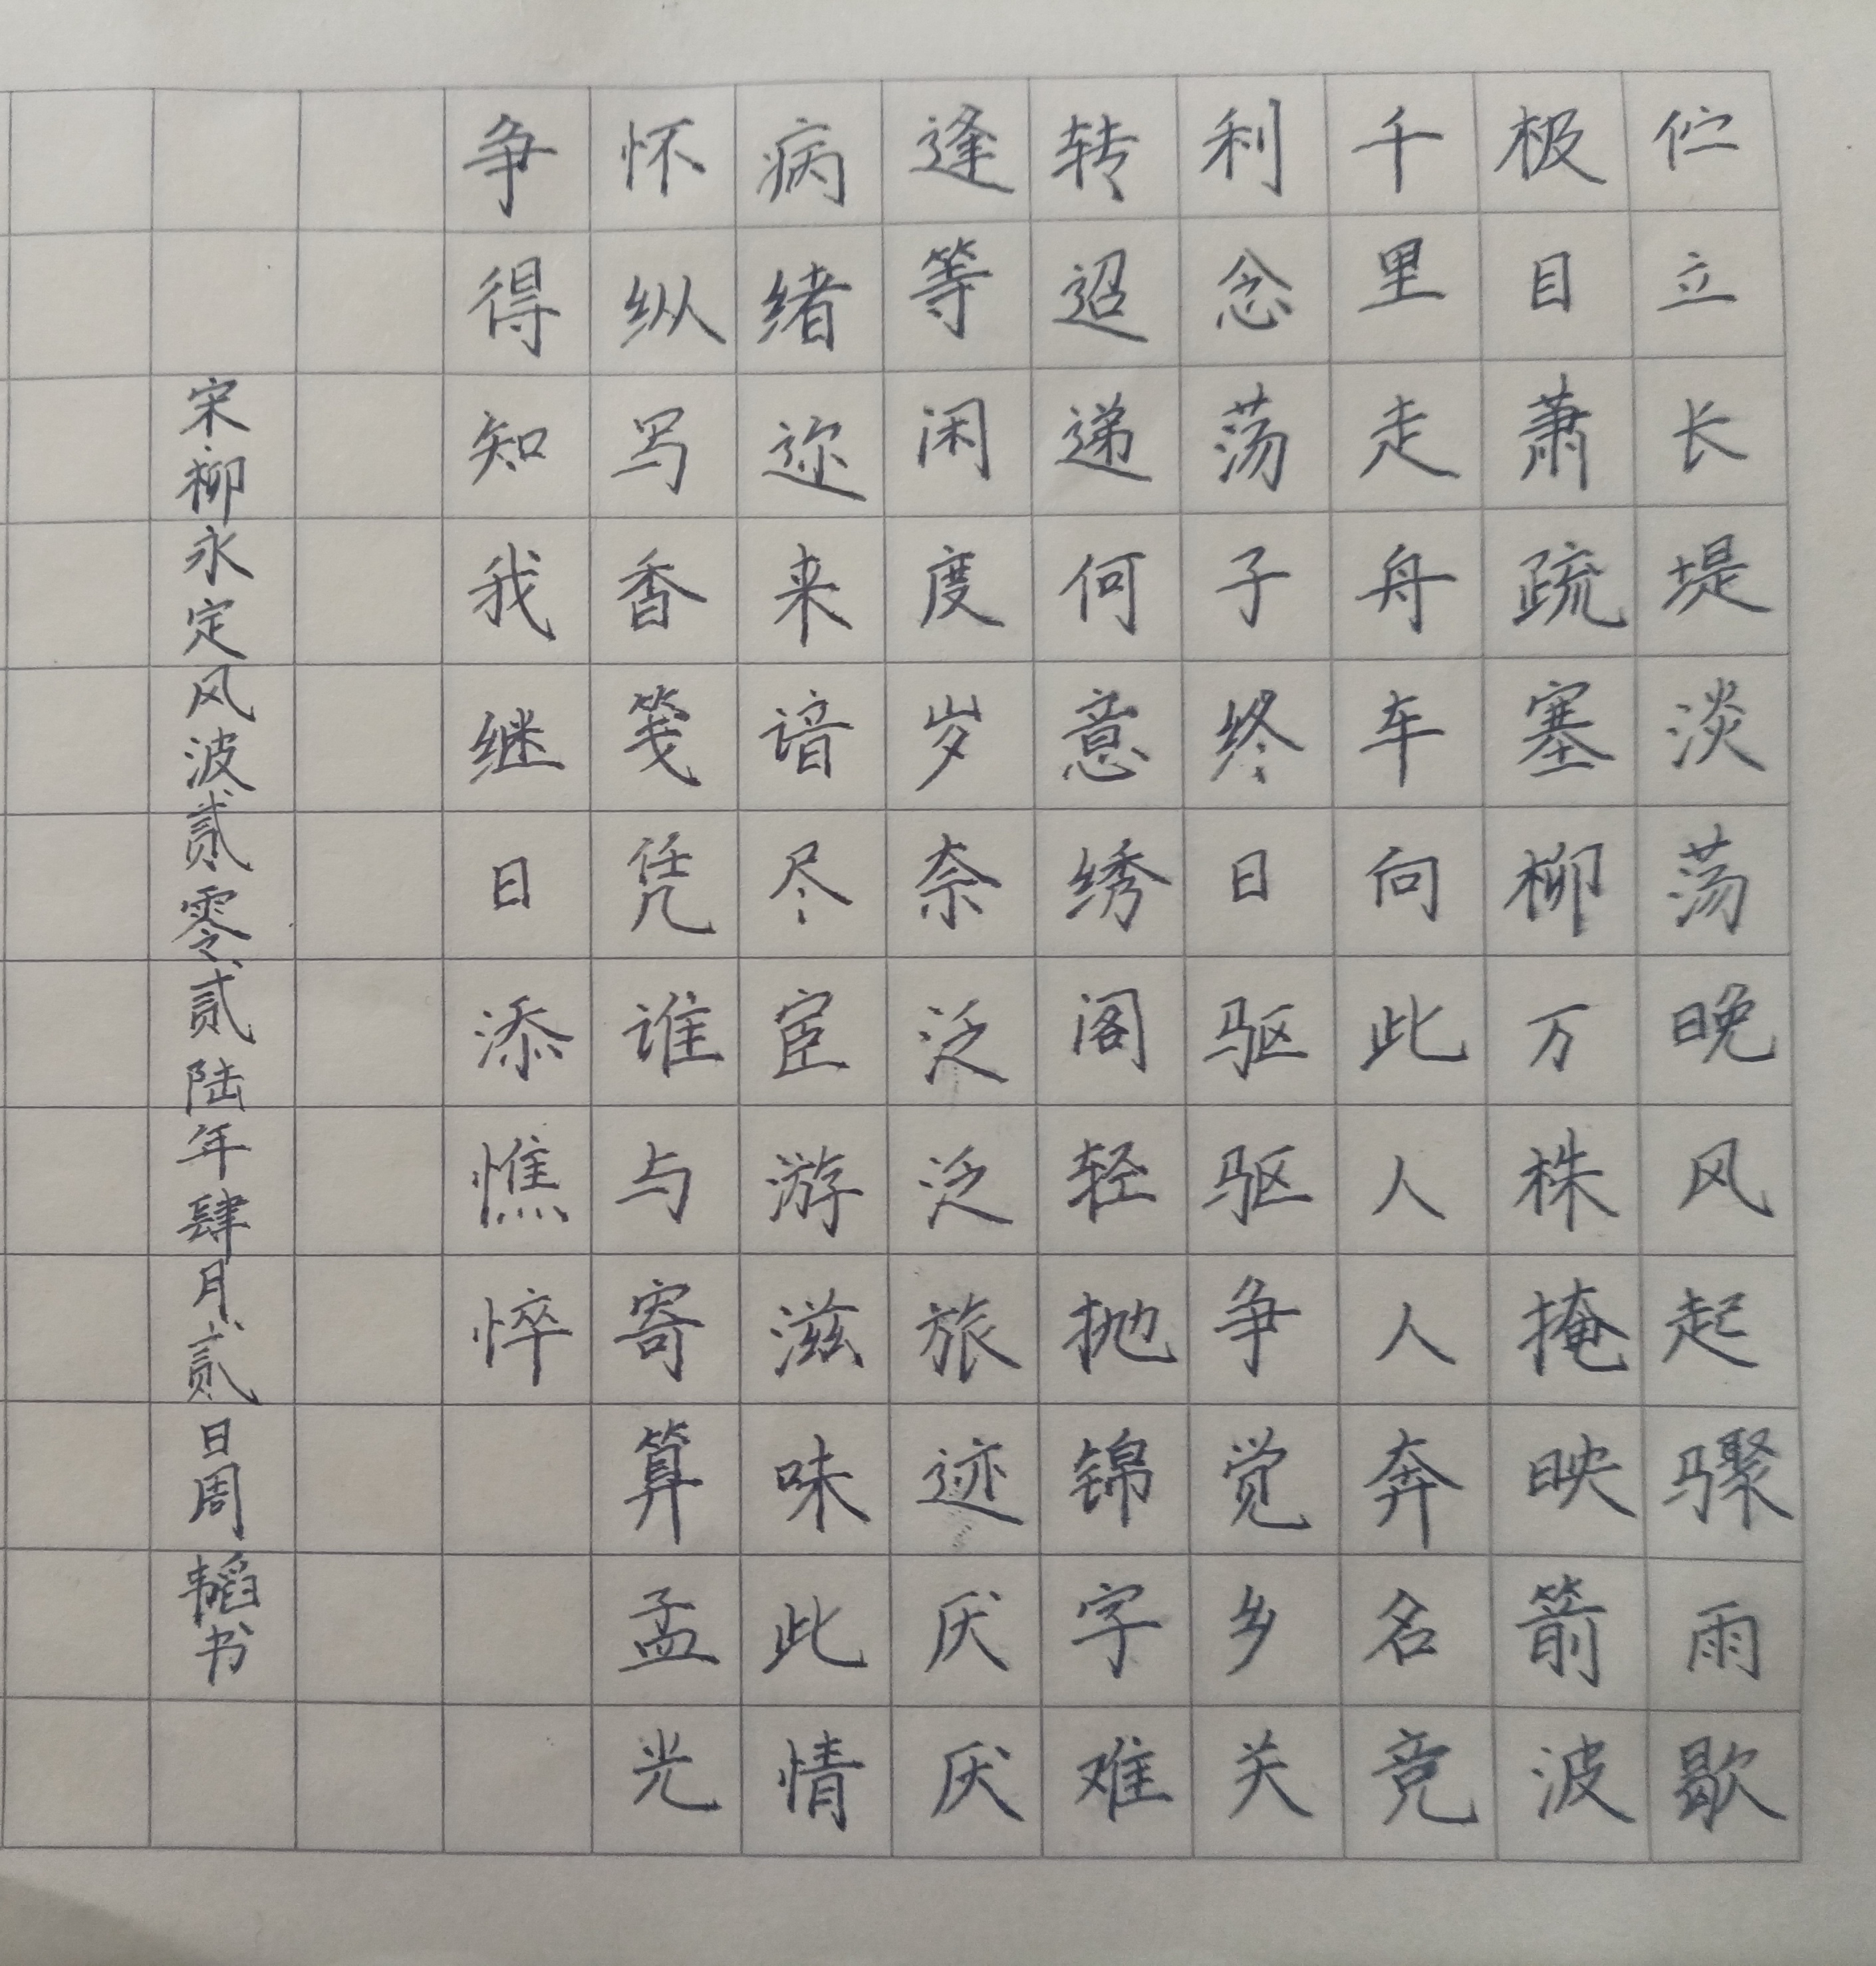 伫立长堤淡荡晚风起骤雨歇
极目萧疏塞柳万株掩映箭波
千里走舟车向此人人奔名竞
利念荡子终日驱驱争觉乡关
转迢递何意绣阁轻抛锦字难
逢等闲度岁奈泛泛旅迹厌厌
病绪迩来谙尽宦游滋味此情
怀纵写香笺凭谁与寄算孟光
争得知我继日添憔悴
宋·柳永定风波贰零贰陆年肆月贰日周韬书